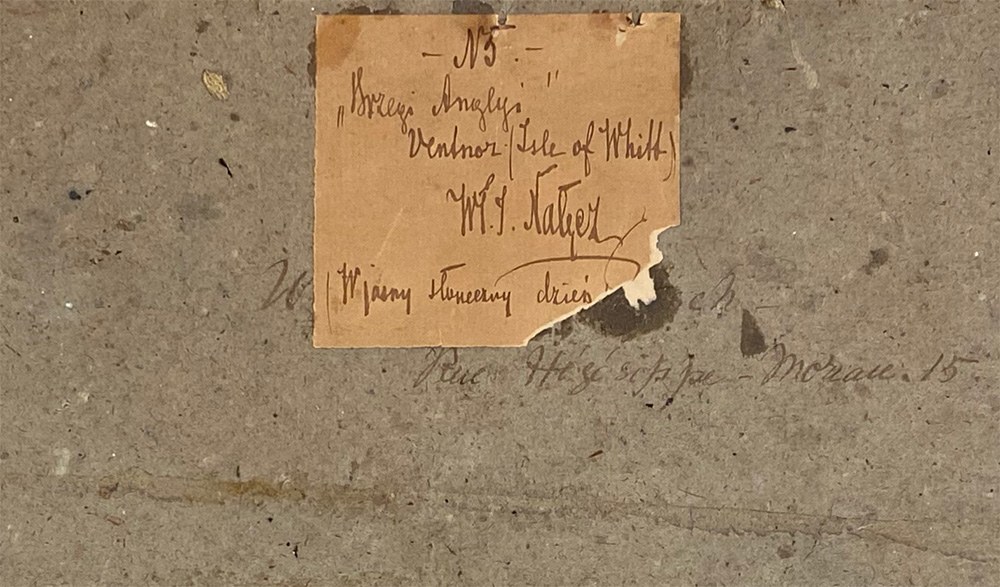 - N5. -
„Brzegi Anglyi"
Ventnor (Isle of Whitt)
Wł. S. Nałęcz
(W jasny słoneczny dzień
ch -
Rue Hégésippe - Moreau. 15.